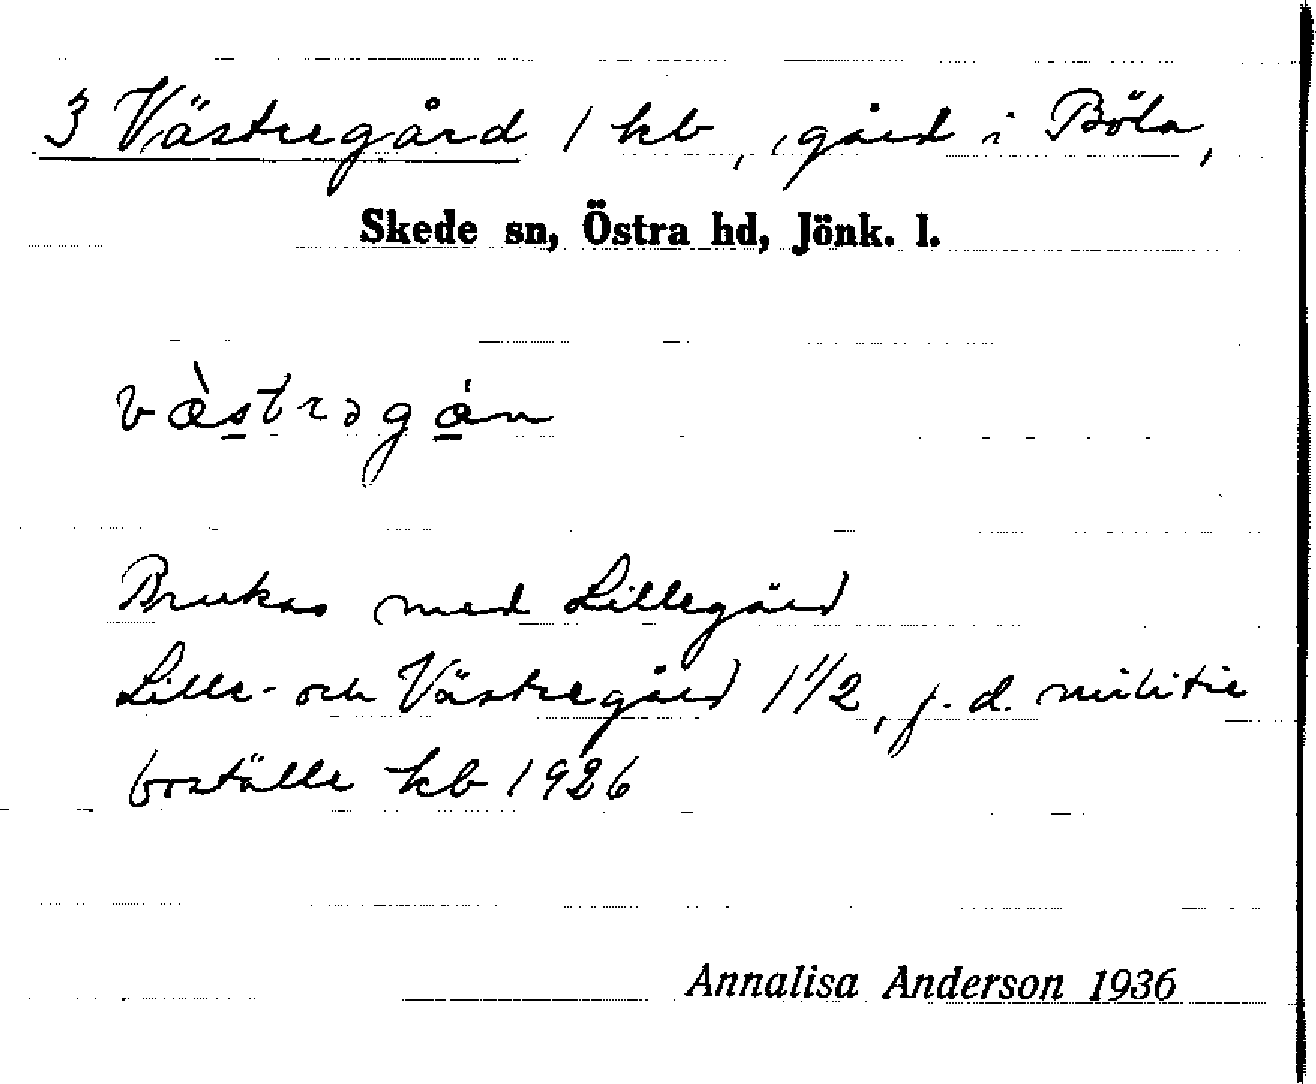 3 Västregård 1 kb, gård i Böla,
Skede sn, Östra hd, Jönk. l.
væ̀strəgɑ́n
Brukas med Lillegård
Lille- och Västregård 1 1/2, f.d. militie
boställe kb 1926
Annalisa Anderson 1936